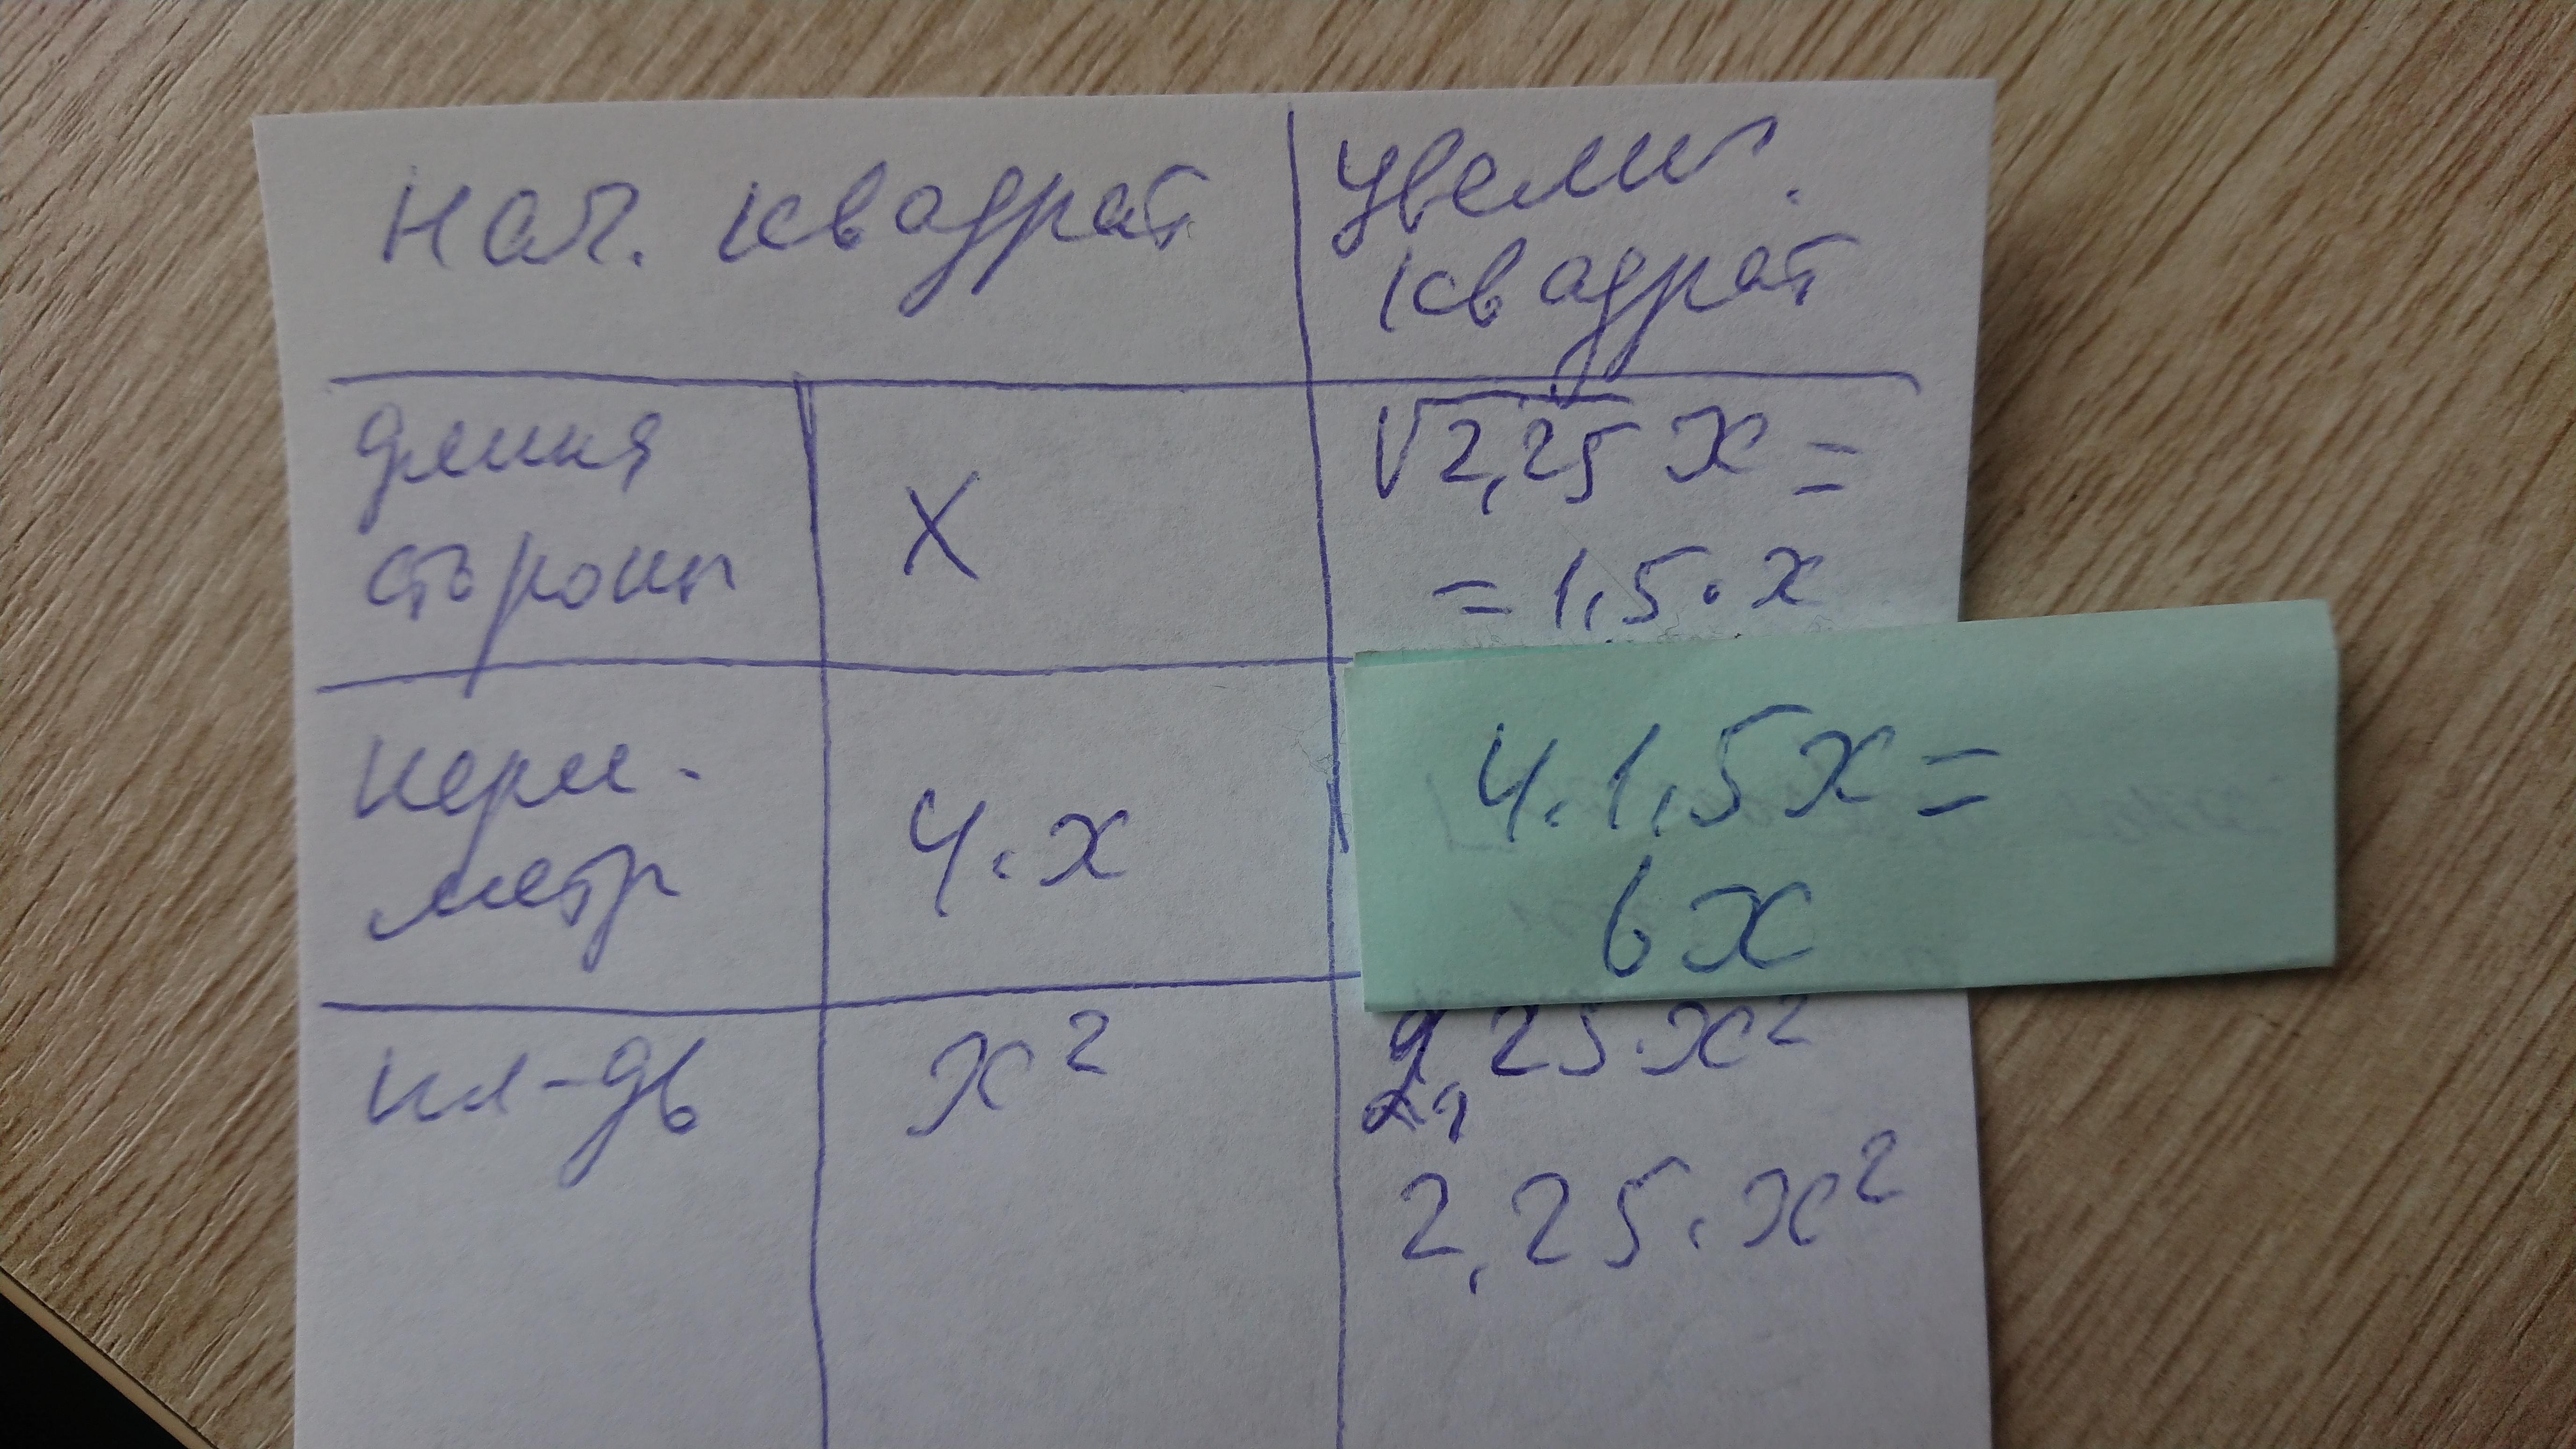 нач. квадрат
увелич.
квадрат
длина
стороны
x
√2,25 x =
= 1,5 · x
пери-
метр
4 · x
4 · 1,5x =
6x
пл-дь
x²
2,25 · x²
2,
2,25 · x²